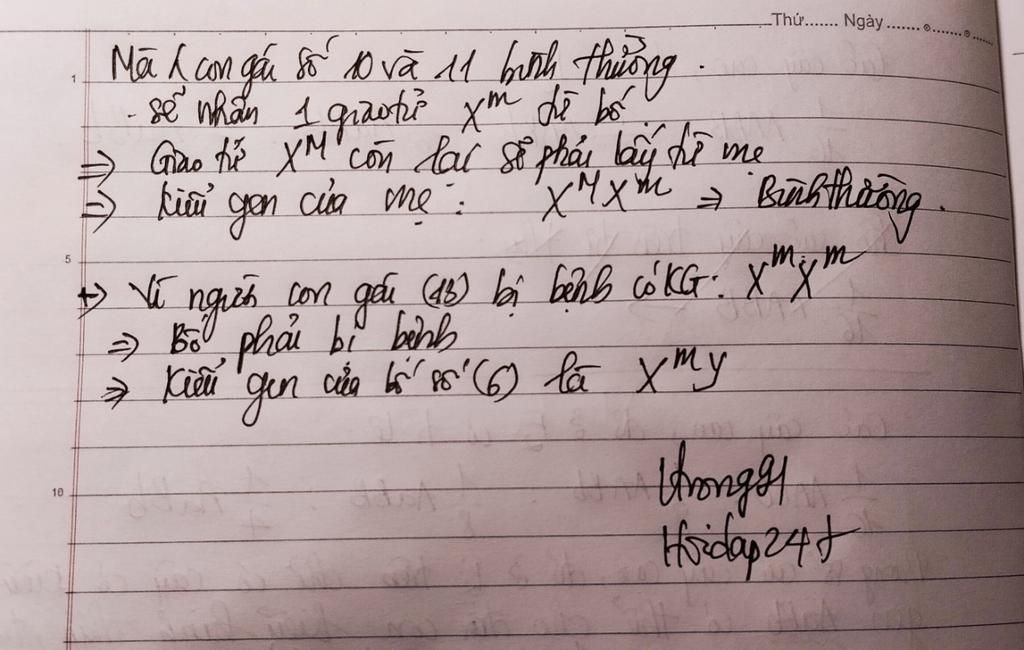 Thứ....... Ngày.......
Mà 1 con gái số 10 và 11 bình thường.
- sẽ nhận 1 giao tử X^m từ bố
⇒ Giao tử X^M còn lại sẽ phải lấy từ mẹ
⇒ Kiểu gen của mẹ: X^M X^m ⇒ Bình thường.
+) Vì người con gái (13) bị bệnh có KG: X^m X^m
⇒ Bố phải bị bệnh
⇒ Kiểu gen của bố số (6) là X^m y
1
5
10
Hoidap24